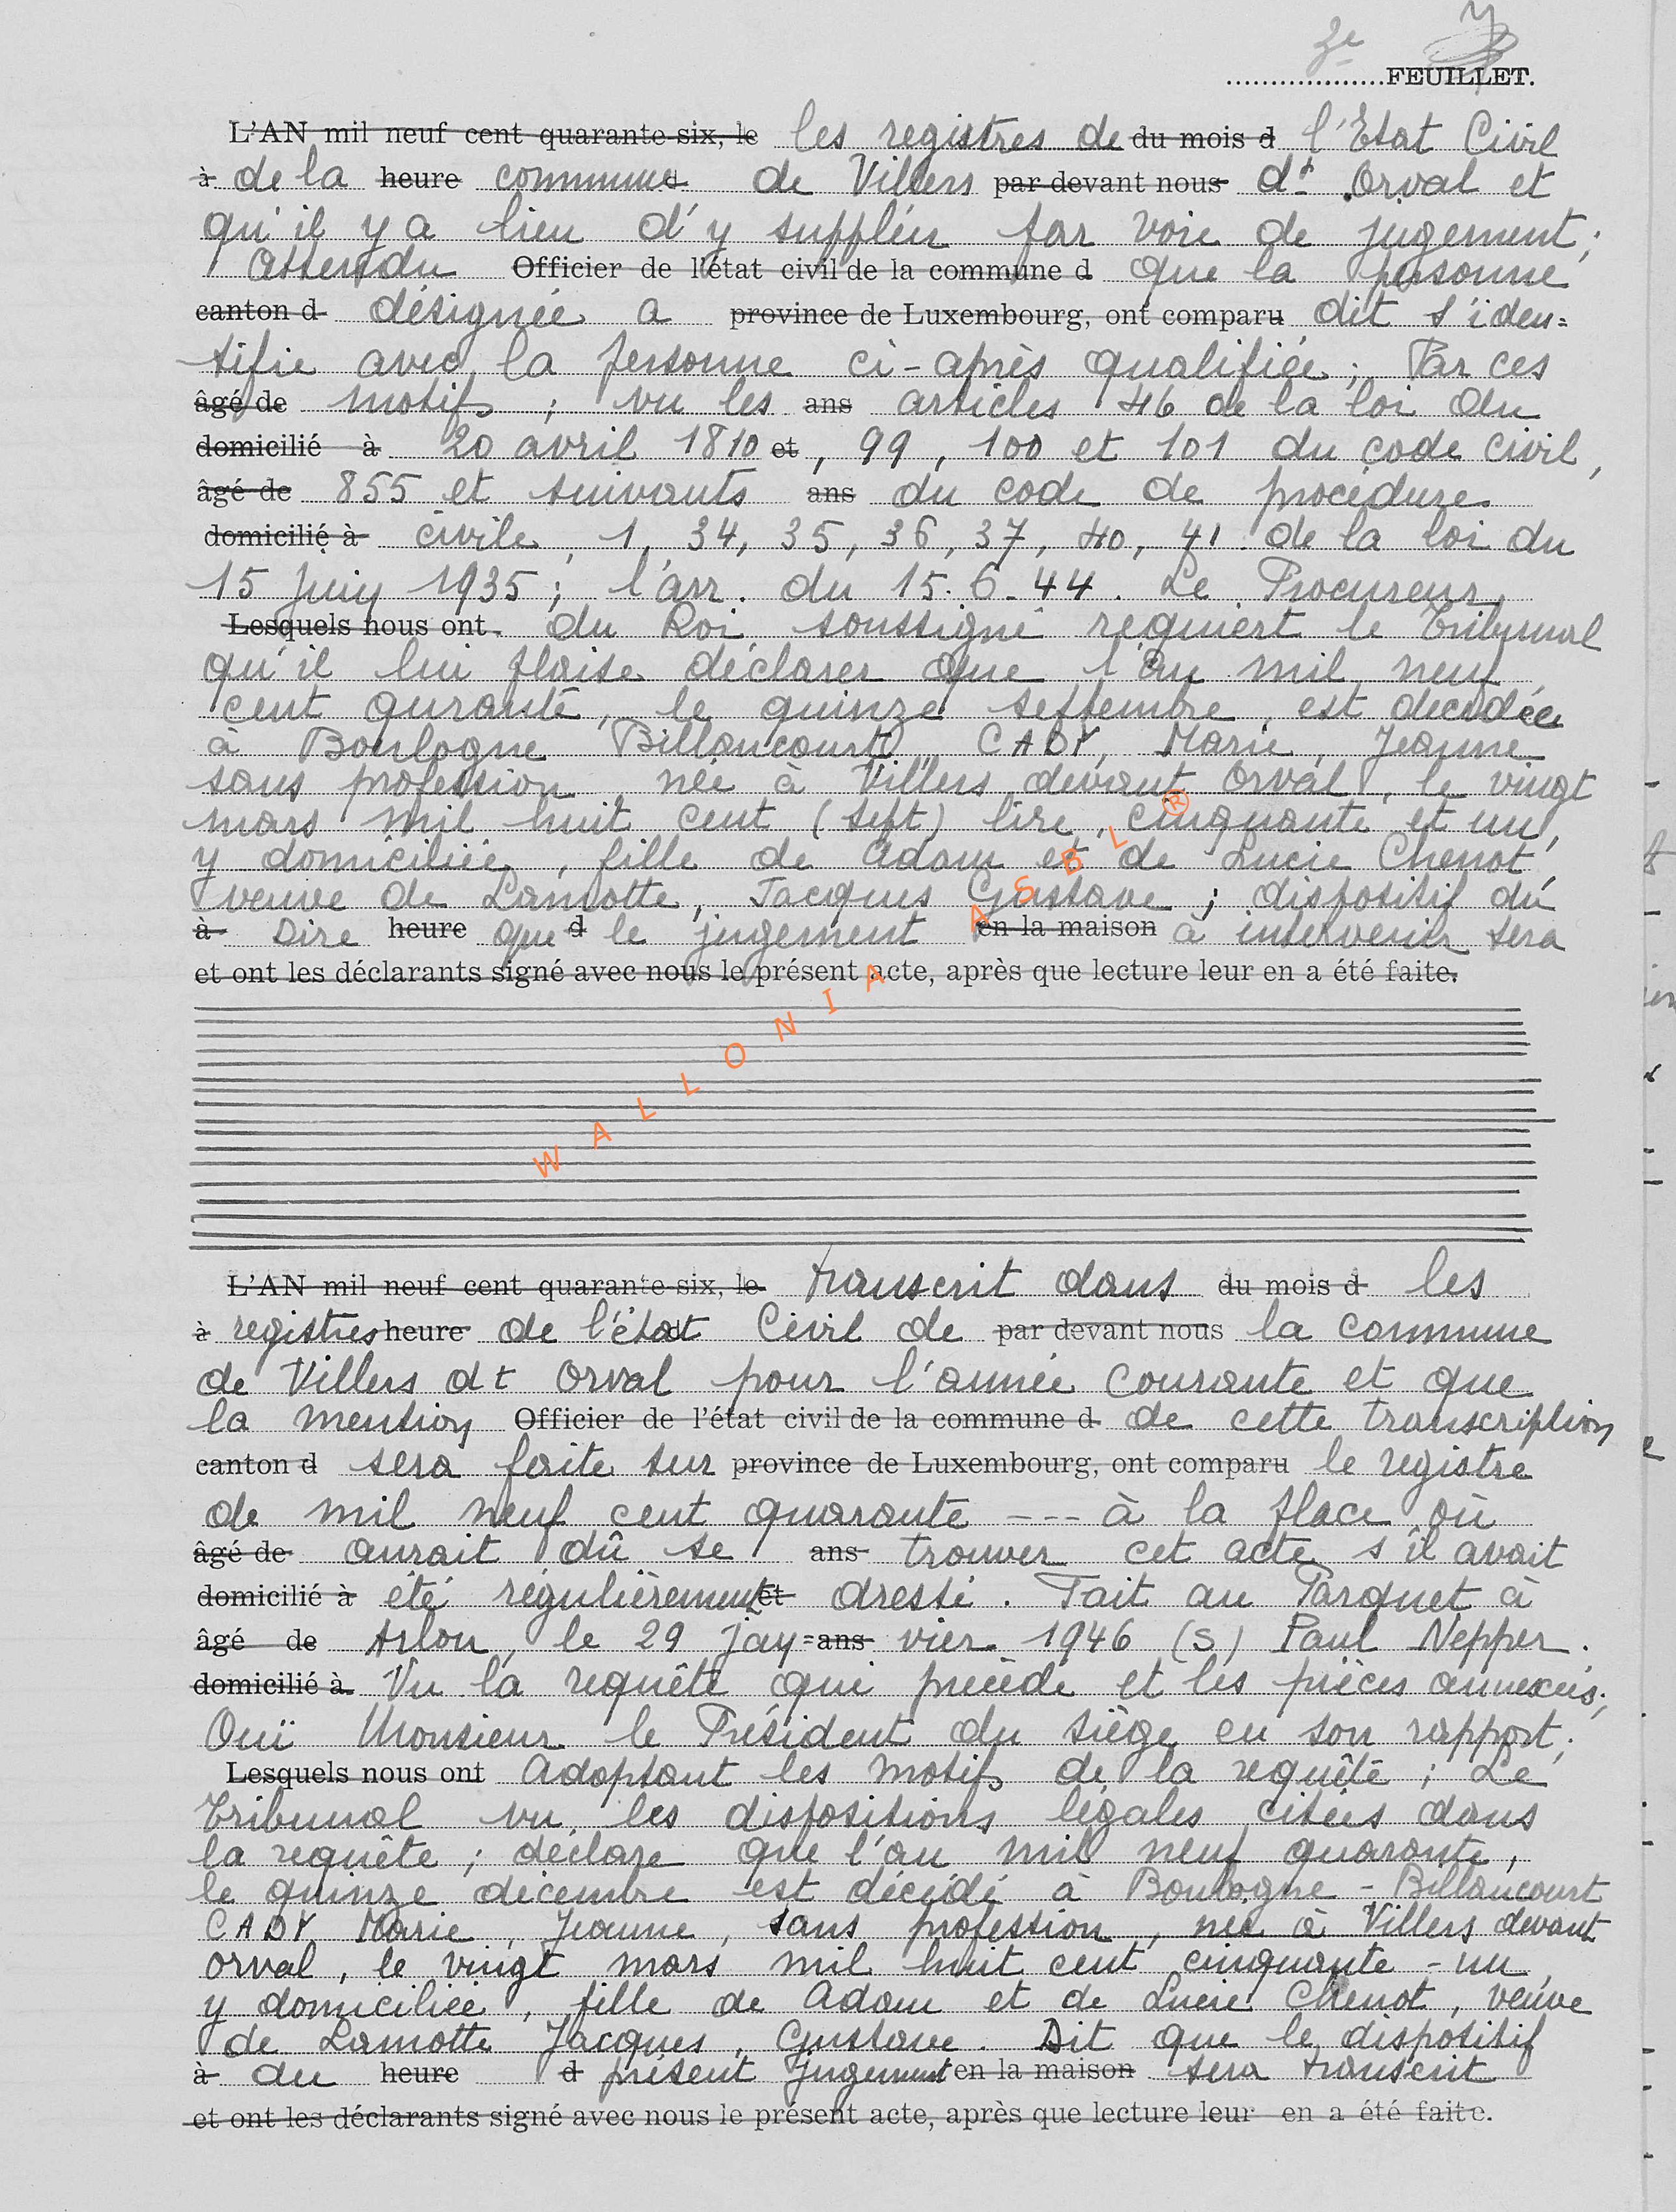 3e 3
FEUILLET.
L'AN mil neuf cent quarante-six, le les registres de du mois d l'Etat Civil
à de la heure commune d de Villers par devant nous dt Orval et
qu'il y a lieu d'y suppléer par voie de jugement ;
Attendu Officier de l'état civil de la commune d que la personne
canton d désignée a province de Luxembourg, ont comparu dit s'iden=
tifie avec la personne ci-après qualifiée ; Par ces
âgé de motifs ; vu les ans articles 46 de la loi du
domicilié à 20 avril 1810 et , 99 , 100 et 101 du code civil ,
âgé de 855 et suivants ans du code de procédure
domicilié à civile , 1, 34, 35, 36, 37, 40, 41 de la loi du
15 Juin 1935 ; l'arr. du 15.6-44. Le Procureur
Lesquels nous ont du Roi soussigné requiert le Tribunal
qu'il lui plaise déclarer que l'an mil neuf
cent qurante, le quinze septembre, est décédée
à Boulogne Billancourt, CADY, Marie, Jeanne
sans profession née à Villers devant Orval, le vingt
mars mil huit cent (sept) lire, cinquante et un,
y domiciliée, fille de Adam et de Lucie Chenot,
veuve de Lamotte, Jacques Gustave ; dispositif du
à Dire heure que d le jugement en la maison à intervenir sera
et ont les déclarants signé avec nous le présent acte, après que lecture leur en a été faite.
WALLONIA ASBL ®
L'AN mil neuf cent quarante-six, le transcrit dans du mois d les
à registres heure de l'état d Civil de par devant nous la commune
de Villers dt Orval pour l'année courante et que
la mention Officier de l'état civil de la commune d de cette transcription
canton d sera faite sur province de Luxembourg, ont comparu le registre
de mil neuf cent quarante --- à la place où
âgé de aurait dû se ans trouver cet acte s'il avait
domicilié à été régulièrement et dressé. Fait au Parquet à
âgé de Arlon, le 29 jan= ans vier. 1946 (s) Paul Nepper.
domicilié à Vu la requête qui précède et les pièces annexées ;
Ouï Monsieur le Président du siège en son rapport ;
Lesquels nous ont Adoptant les motifs de la requête ; Le
Tribunal vu les dispositions légales citées dans
la requête ; déclare que l'an mil neuf quarante,
le quinze décembre est décédé à Boulogne - Billancourt
CADY Marie, Jeanne, sans profession, née à Villers devant
orval, le vingt mars mil huit cent cinquante-un,
y domiciliée, fille de Adam et de Lucie Chenot, veuve
de Lamotte Jacques, Gustave. Dit que le dispositif
à du heure d présent jugement en la maison sera transcrit
et ont les déclarants signé avec nous le présent acte, après que lecture leur en a été faite.